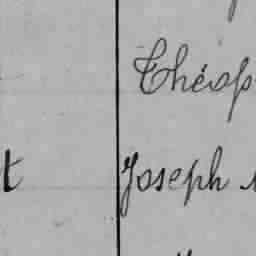 Théop
t Joseph